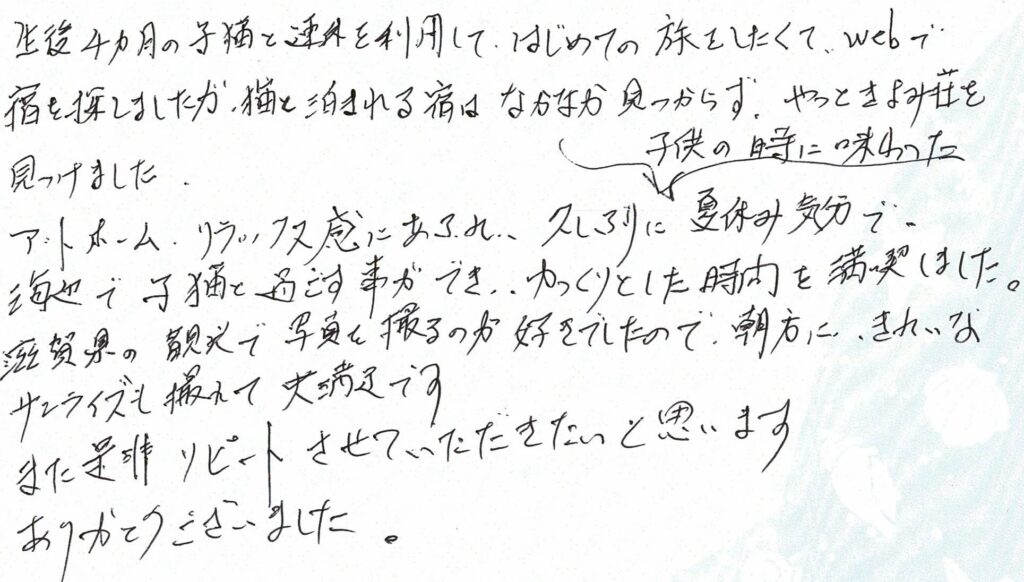 生後4カ月の子猫と連休を利用して、はじめての旅をしたくて、webで
宿を探しましたが、猫と泊まれる宿はなかなか見つからず、やっときよみ荘を
見つけました。
子供の時に味わった
アットホーム、リラックス感にあふれ、久しぶりに夏休み気分で、
海辺で子猫と過ごす事ができ、ゆっくりとした時間を満喫しました。
滋賀県の観光で写真を撮るのが好きでしたので、朝方に、きれいな
サンライズも撮れて大満足です
また是非リピートさせていただきたいと思います
ありがとうございました。